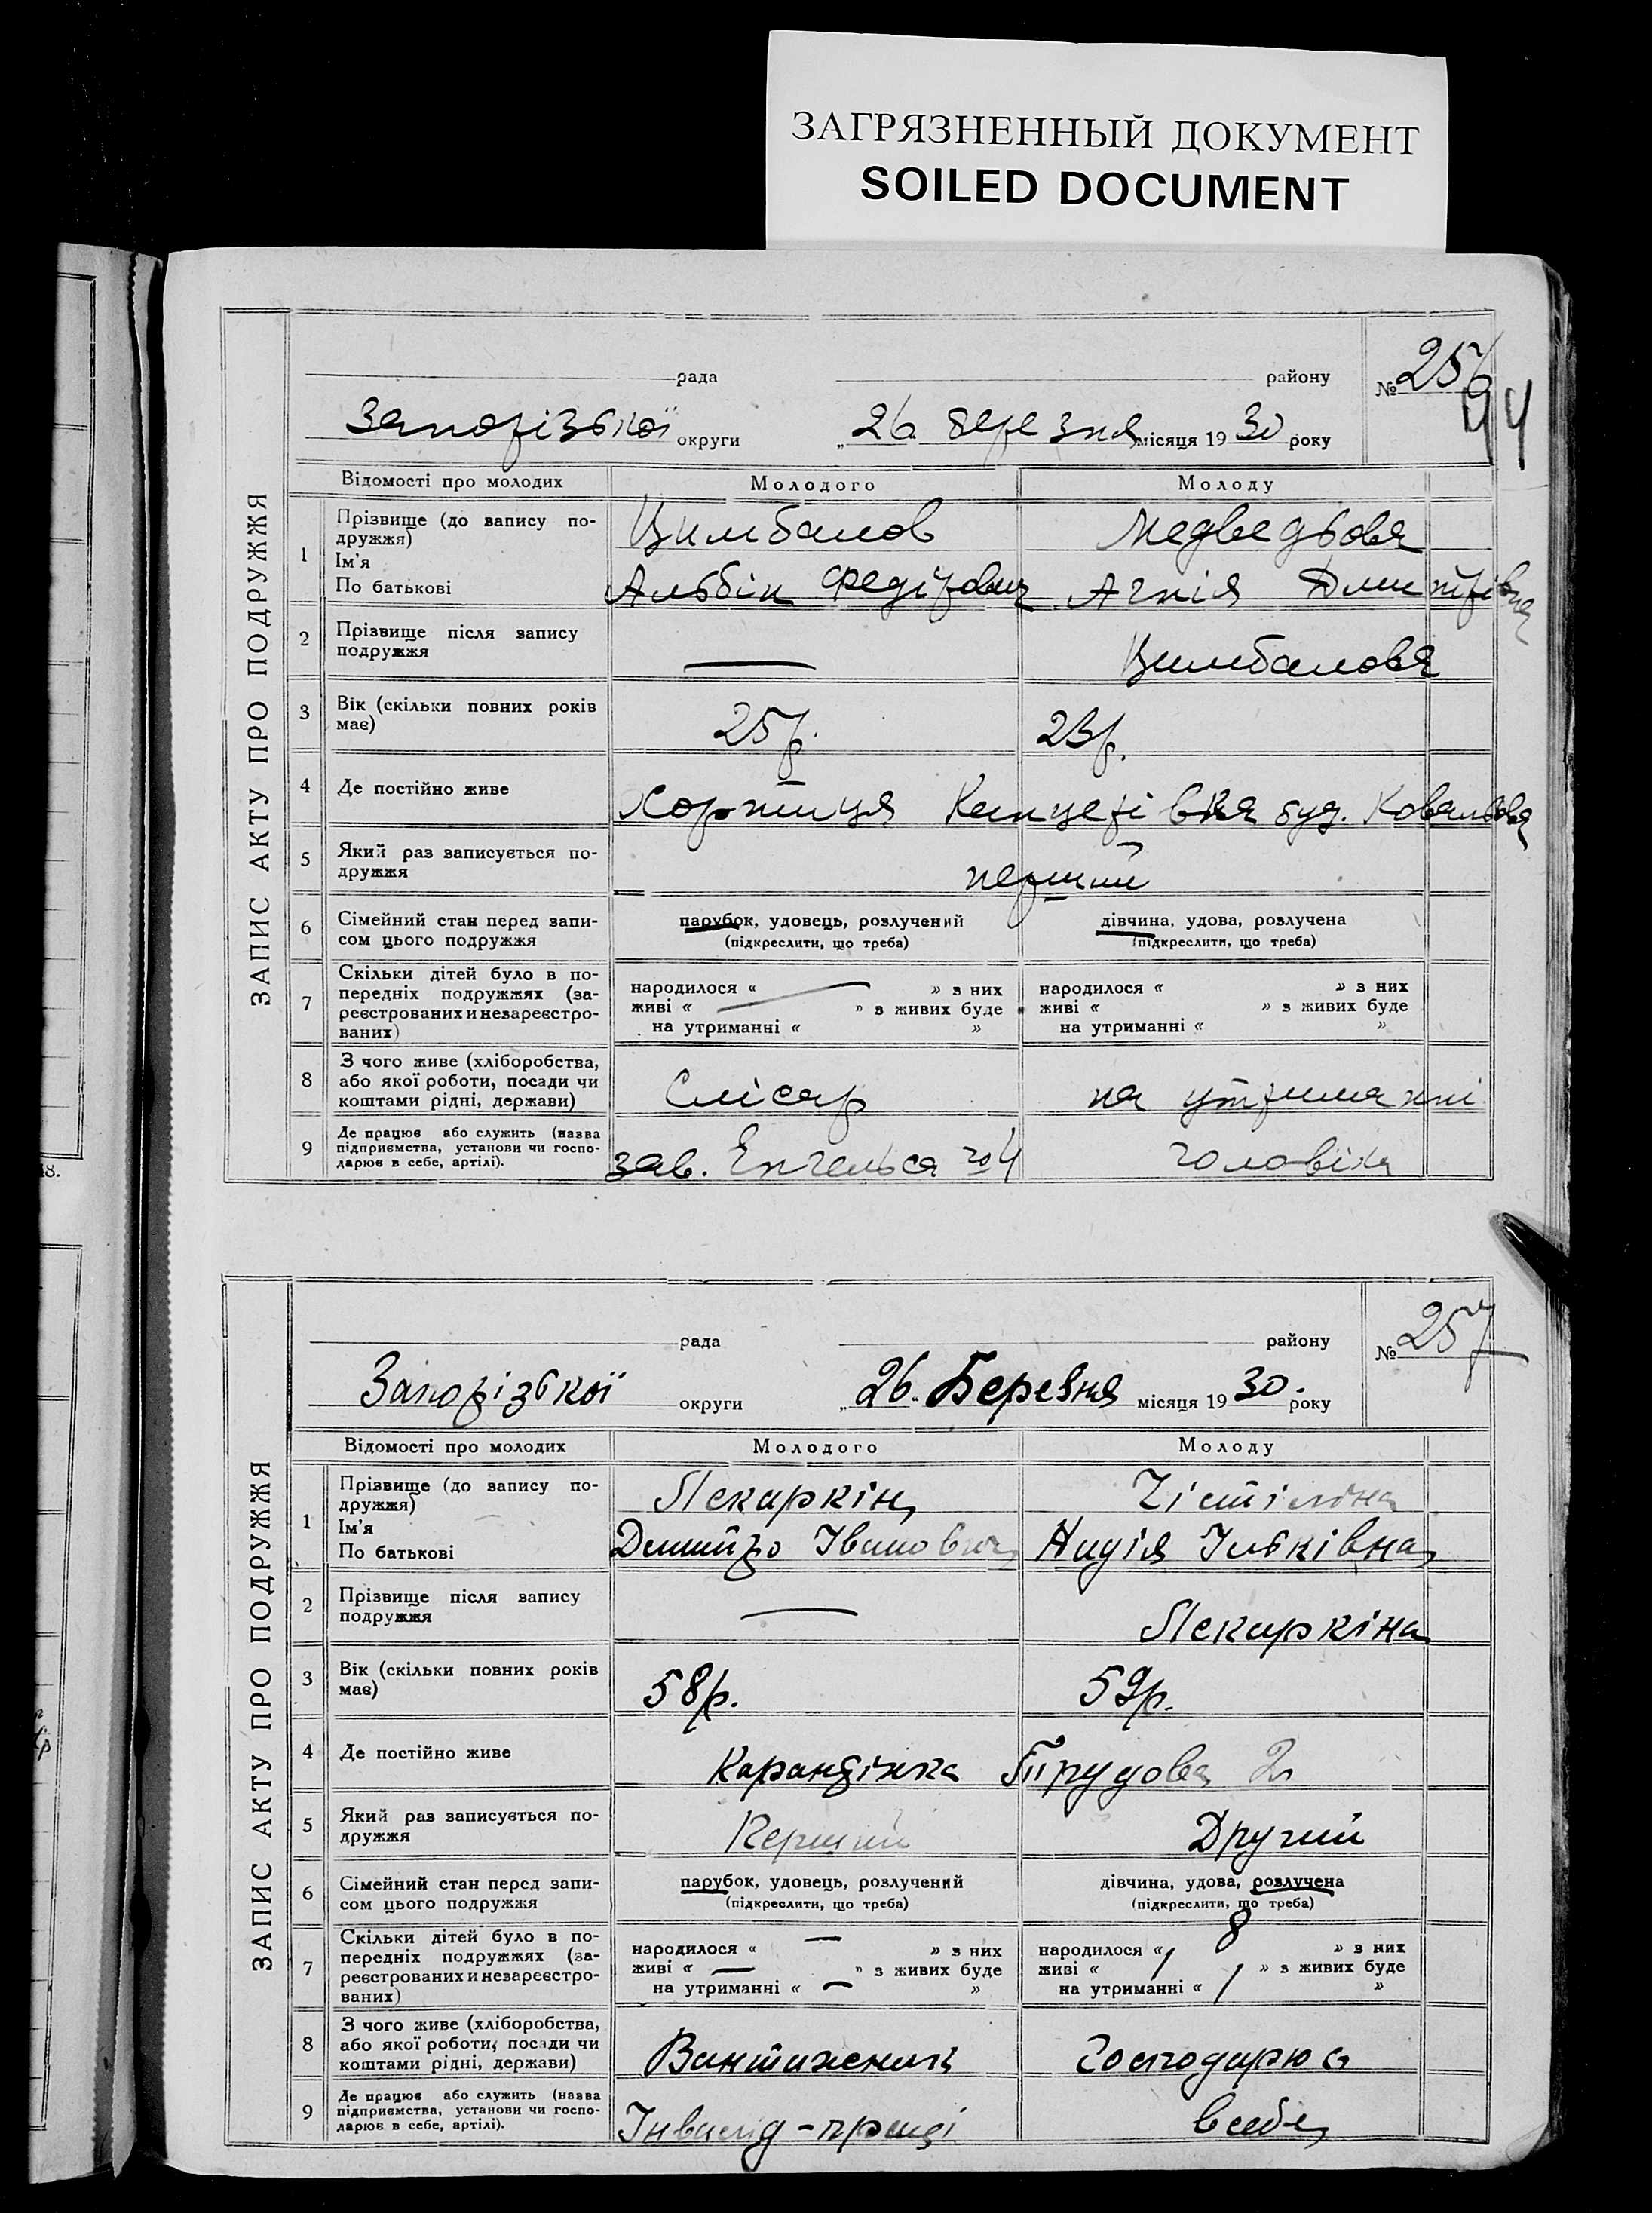 ЗАГРЯЗНЕННЫЙ ДОКУМЕНТ
SOILED DOCUMENT
ЗАПИС АКТУ ПРО ПОДРУЖЖЯ
рада району № 256
94
Запорізької округи „26 березня місяця 1930 року
Відомості про молодих Молодого Молоду
1 Прізвище (до запису по- Цимбалов Медведьова
дружжя)
Ім'я
По батькові Альбін Федірович Агнія Дмитрівна
2 Прізвище після запису
подружжя — Цимбалова
3 Вік (скільки повних років
має) 25 р. 23 р.
4 Де постійно живе Хортиця Канцерівка буд. Ковальова
5 Який раз записується по-
дружжя перший
6 Сімейний стан перед запи- парубок, удовець, розлучений дівчина, удова, розлучена
сом цього подружжя (підкреслити, що треба) (підкреслити, що треба)
7 Скільки дітей було в по-
передніх подружжях (за- народилося « » з них народилося « » з них
реєстрованих и незареєстро- живі « » з живих буде живі « » з живих буде
ваних) на утриманні « » на утриманні « »
8 З чого живе (хліборобства,
або якої роботи, посади чи Слісар на утриманні
коштами рідні, держави)
9 Де працює або служить (назва
підприємства, установи чи госпо- зав. Енгельса ч 4 чоловіка
дарює в себе, артілі).
48.
ЗАПИС АКТУ ПРО ПОДРУЖЖЯ
рада району № 257
Запорізької округи „26" Березня місяця 1930. року
Відомості про молодих Молодого Молоду
1 Прізвище (до запису по- Пекаркін Чістіліна
дружжя)
Ім'я
По батькові Дмитро Іванович Надія Ільківна
2 Прізвище після запису
подружжя — Пекаркіна
3 Вік (скільки повних років
має) 58 р. 59 р.
4 Де постійно живе Карантінка Трудова 2
5 Який раз записується по-
дружжя Перший Другий
6 Сімейний стан перед запи- парубок, удовець, розлучений дівчина, удова, розлучена
сом цього подружжя (підкреслити, що треба) (підкреслити, що треба)
7 Скільки дітей було в по- — 8
передніх подружжях (за- народилося « » з них народилося « » з них
реєстрованих и незареєстро- живі « — » з живих буде живі « 1 » з живих буде
ваних) на утриманні « — » на утриманні « 1 »
8 З чого живе (хліборобства,
або якої роботи, посади чи Вантажник Господарює
коштами рідні, держави)
9 Де працює або служить (назва
підприємства, установи чи госпо- Інвалід-праці в себе
дарює в себе, артілі).